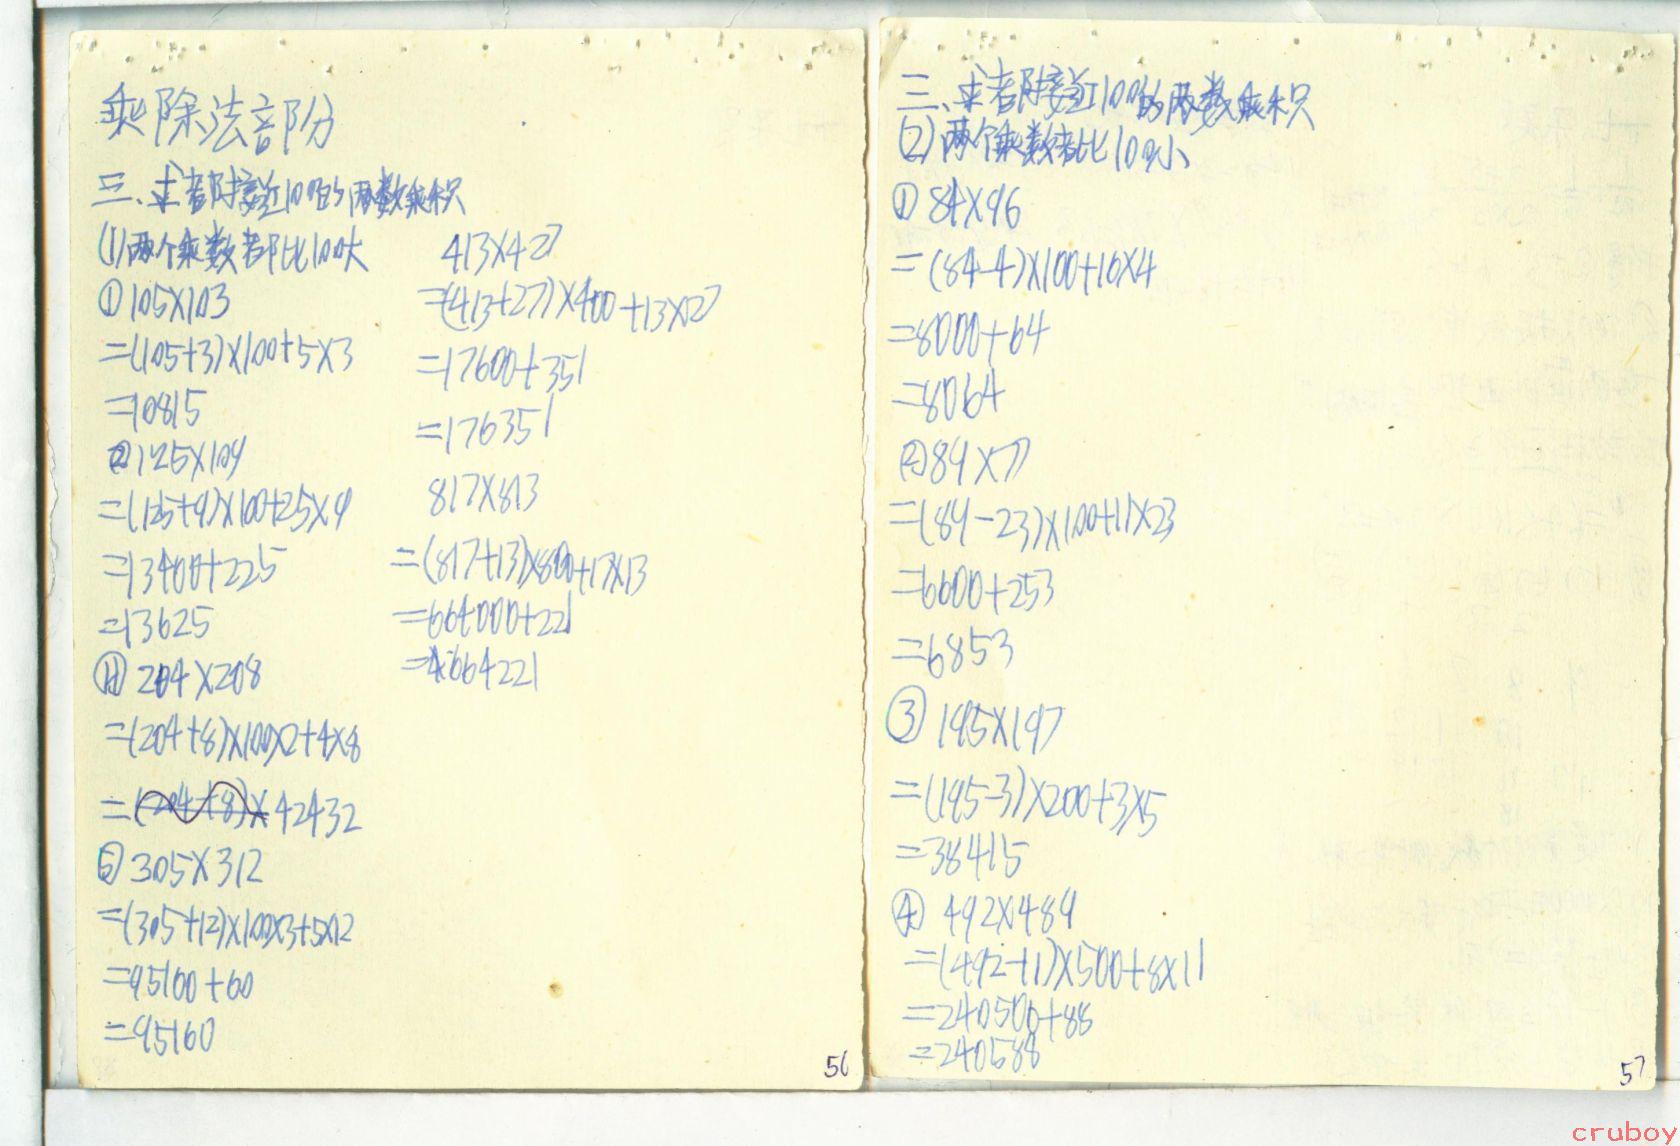 乘除法部分
三、求都接近100的两数乘积
(1)两个乘数都比100大
①105×103
=(105+3)×100+5×3
=10815
②125×109
=(125+9)×100+25×9
=13400+225
=13625
204×208
=(204+8)×100×2+4×8
=(204+8)×42432
⑤305×312
=(305+12)×100×3+5×12
=95100+60
=95160
413×427
=(413+27)×400+13×27
=17600+351
=176351
817×813
=(817+13)×800+17×13
=664000+221
=664221
56
三、求都接近100的两数乘积
(2)两个乘数都比100小
①84×96
=(84-4)×100+16×4
=8000+64
=8064
②89×77
=(89-23)×100+11×23
=6600+253
=6853
③195×197
=(195-3)×200+3×5
=38415
④492×489
=(492-11)×500+8×11
=240500+88
=240588
57
cruboy